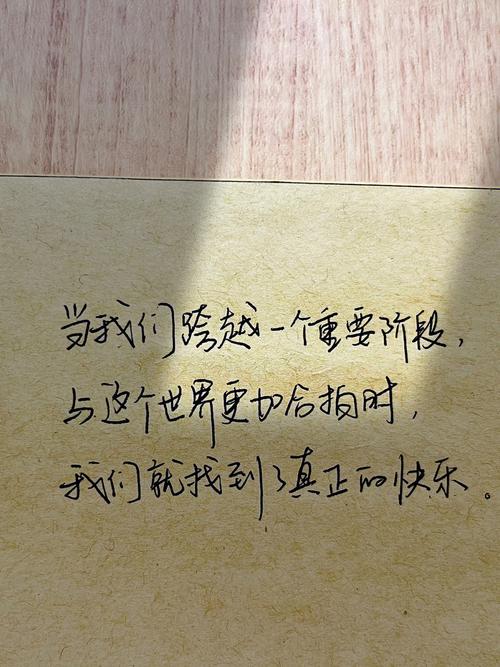 当我们跨越一个重要阶段，
与这个世界更加合拍时，
我们就找到了真正的快乐。